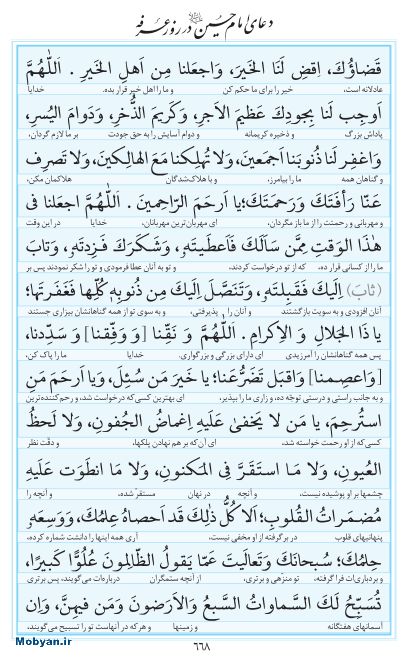 دعای امام حسین در روز عرفه
قَضاؤُكَ، اِقضِ لَنَا الخَيرَ، وَاجعَلنا مِن اَهلِ الخَيرِ . اَللّٰهُمَّ
عادلانه است، خیر را برای ما حکم کن و ما را اهل خیر قرار بده. خدایا
اَوجِب لَنا بِجودِكَ عَظيمَ الاَجرِ، وَكَريمَ الذُّخرِ، وَدَوامَ اليُسرِ،
پاداش بزرگ و ذخیره کریمانه و دوام آسایش را به حق جودت بر ما لازم گردان،
وَاغفِر لَنا ذُنوبَنا اَجمَعينَ، وَلا تُهلِكنا مَعَ الهالِكينَ، وَلا تَصرِف
و گناهان همه ما را بیامرز، و با هلاک‌شدگان هلاکمان مکن،
عَنّا رَأفَتَكَ وَرَحمَتَكَ؛ يا اَرحَمَ الرّاحِمينَ . اَللّٰهُمَّ اجعَلنا فى
و مهربانی و رحمتت را از ما باز مگردان، ای مهربان‌ترین مهربانان، خدایا در این وقت
هٰذَا الوَقتِ مِمَّن سَأَلَكَ فَاَعطَيتَهُ، وَشَكَرَكَ فَزِدتَهُ، وَتابَ
ما را از کسانی قرار ده، که از تو درخواست کردند، و تو به آنان عطا فرمودی و تو را شکر نمودند پس بر
(ثابَ) اِلَيكَ فَقَبِلتَهُ، وَتَنَصَّلَ اِلَيكَ مِن ذُنوبِهِ كُلِّها فَغَفَرتَها؛
آنان افزودی و به سویت بازگشتند و آنان را پذیرفتی، و به سوی تو از همه گناهانشان بیزاری جستند
يا ذَا الجَلالِ وَ الاِكرامِ. اَللّٰهُمَّ وَ نَقِّنا [وَ وَفِّقنا] وَ سَدِّدنا،
پس همه گناهانشان را آمرزیدی ای دارای بزرگی و بزرگواری. خدایا ما را پاک کن،
[وَاعصِمنا] وَاقبَل تَضَرُّعَنا؛ يا خَيرَ مَن سُئِلَ، وَيا اَرحَمَ مَنِ
و به جانب راستی و درستی توجه ده، و زاری ما را بپذیر، ای بهترین کسی که درخواست شد، و رحم‌کننده‌ترین
استُرحِمَ، يا مَن لا يَخفىٰ عَلَيهِ اِغماضُ الجُفونِ، وَلا لَحظُ
کسی که از او رحمت خواسته شد، ای آن که بر هم نهادن پلکها، و دقت نظر
العُيونِ، وَلا مَا استَقَرَّ فِى المَكنونِ، وَلا مَا انطَوَت عَلَيهِ
چشمها بر او پوشیده نیست، و آنچه در نهان مستقر شده، و آنچه را
مُضمَراتُ القُلوبِ؛ اَلا كُلُّ ذٰلِكَ قَد اَحصاهُ عِلمُكَ، وَوَسِعَهُ
پنهانیهای قلوب در بر گرفته از او مخفی نیست، آری همه اینها را دانشت شماره کرده،
حِلمُكَ؛ سُبحانَكَ وَتَعالَيتَ عَمّا يَقولُ الظّالِمونَ عُلُوًّا كَبيرًا،
و بردباری‌ات فرا گرفته، تو منزهی و برتری، از آنچه ستمگران درباره‌ات می‌گویند، پس برتری
تُسَبِّحُ لَكَ السَّماواتُ السَّبعُ وَالاَرَضونَ وَمَن فيهِنَّ، وَاِن
آسمانهای هفتگانه و زمینها و هر که در آنهاست تو را تسبیح می‌گویند،
۶۶۸
Mobyan.ir